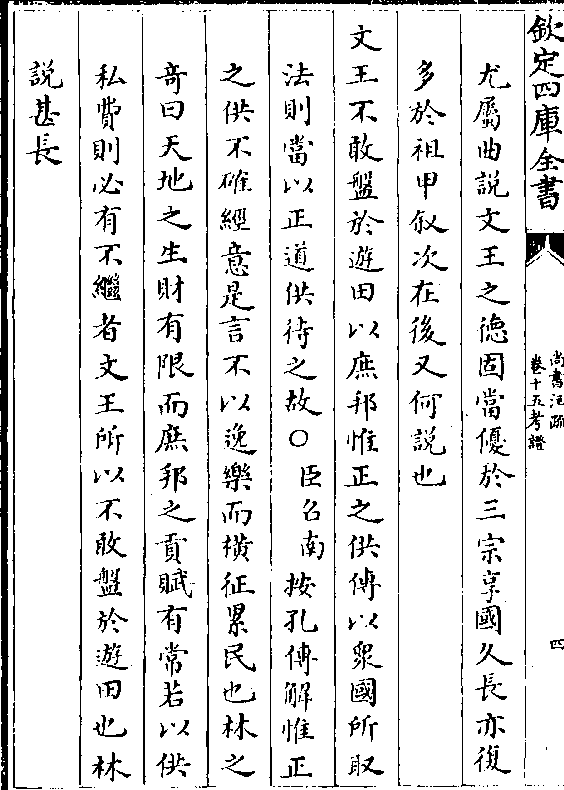 欽定四庫全書
尚書注疏
卷十五考證
四
尤屬曲說文王之德固當優於三宗享國久長亦復
多於祖甲叙次在後又何說也
文王不敢盤於遊田以庶邦惟正之供傳以衆國所取
法則當以正道供待之故○臣召南按孔傳解惟正
之供不確經意是言不以逸樂而橫征累民也林之
竒曰天地之生財有限而庶邦之貢賦有常若以供
私費則必有不繼者文王所以不敢盤於遊田也林
說甚長